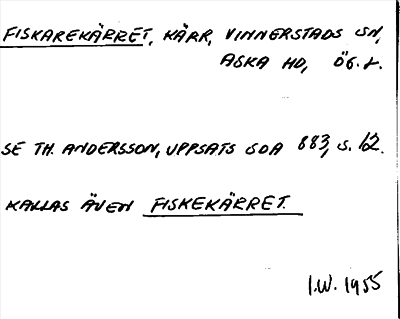 FISKAREKÄRRET, KÄRR, VINNERSTADS SN,
ASKA HD, ÖG. L.
SE TH. ANDERSSON, UPPSATS SOA 883, S. 12.
KALLAS ÄVEN FISKEKÄRRET.
I.W. 1955